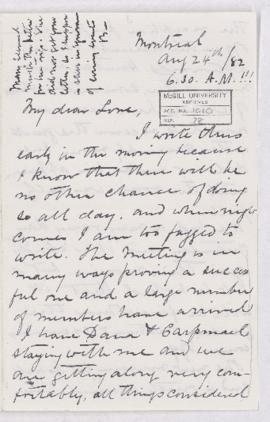 Montreal
Aug 24th /82
6.30. A.M!!!
McGILL UNIVERSITY
ARCHIVES
ACC. NO. 1010
REF. 78
My dear Love,
I write thus
early in the morning because
I know that there will be
no other chance of doing
so all day. and when night
comes I am too fagged to
write. The Meeting is in
many ways proving a succes
ful one and a large number
of members have arrived
I have Dana & Carpmael
staying with me and we
are getting along very com-
fortably, all things considered